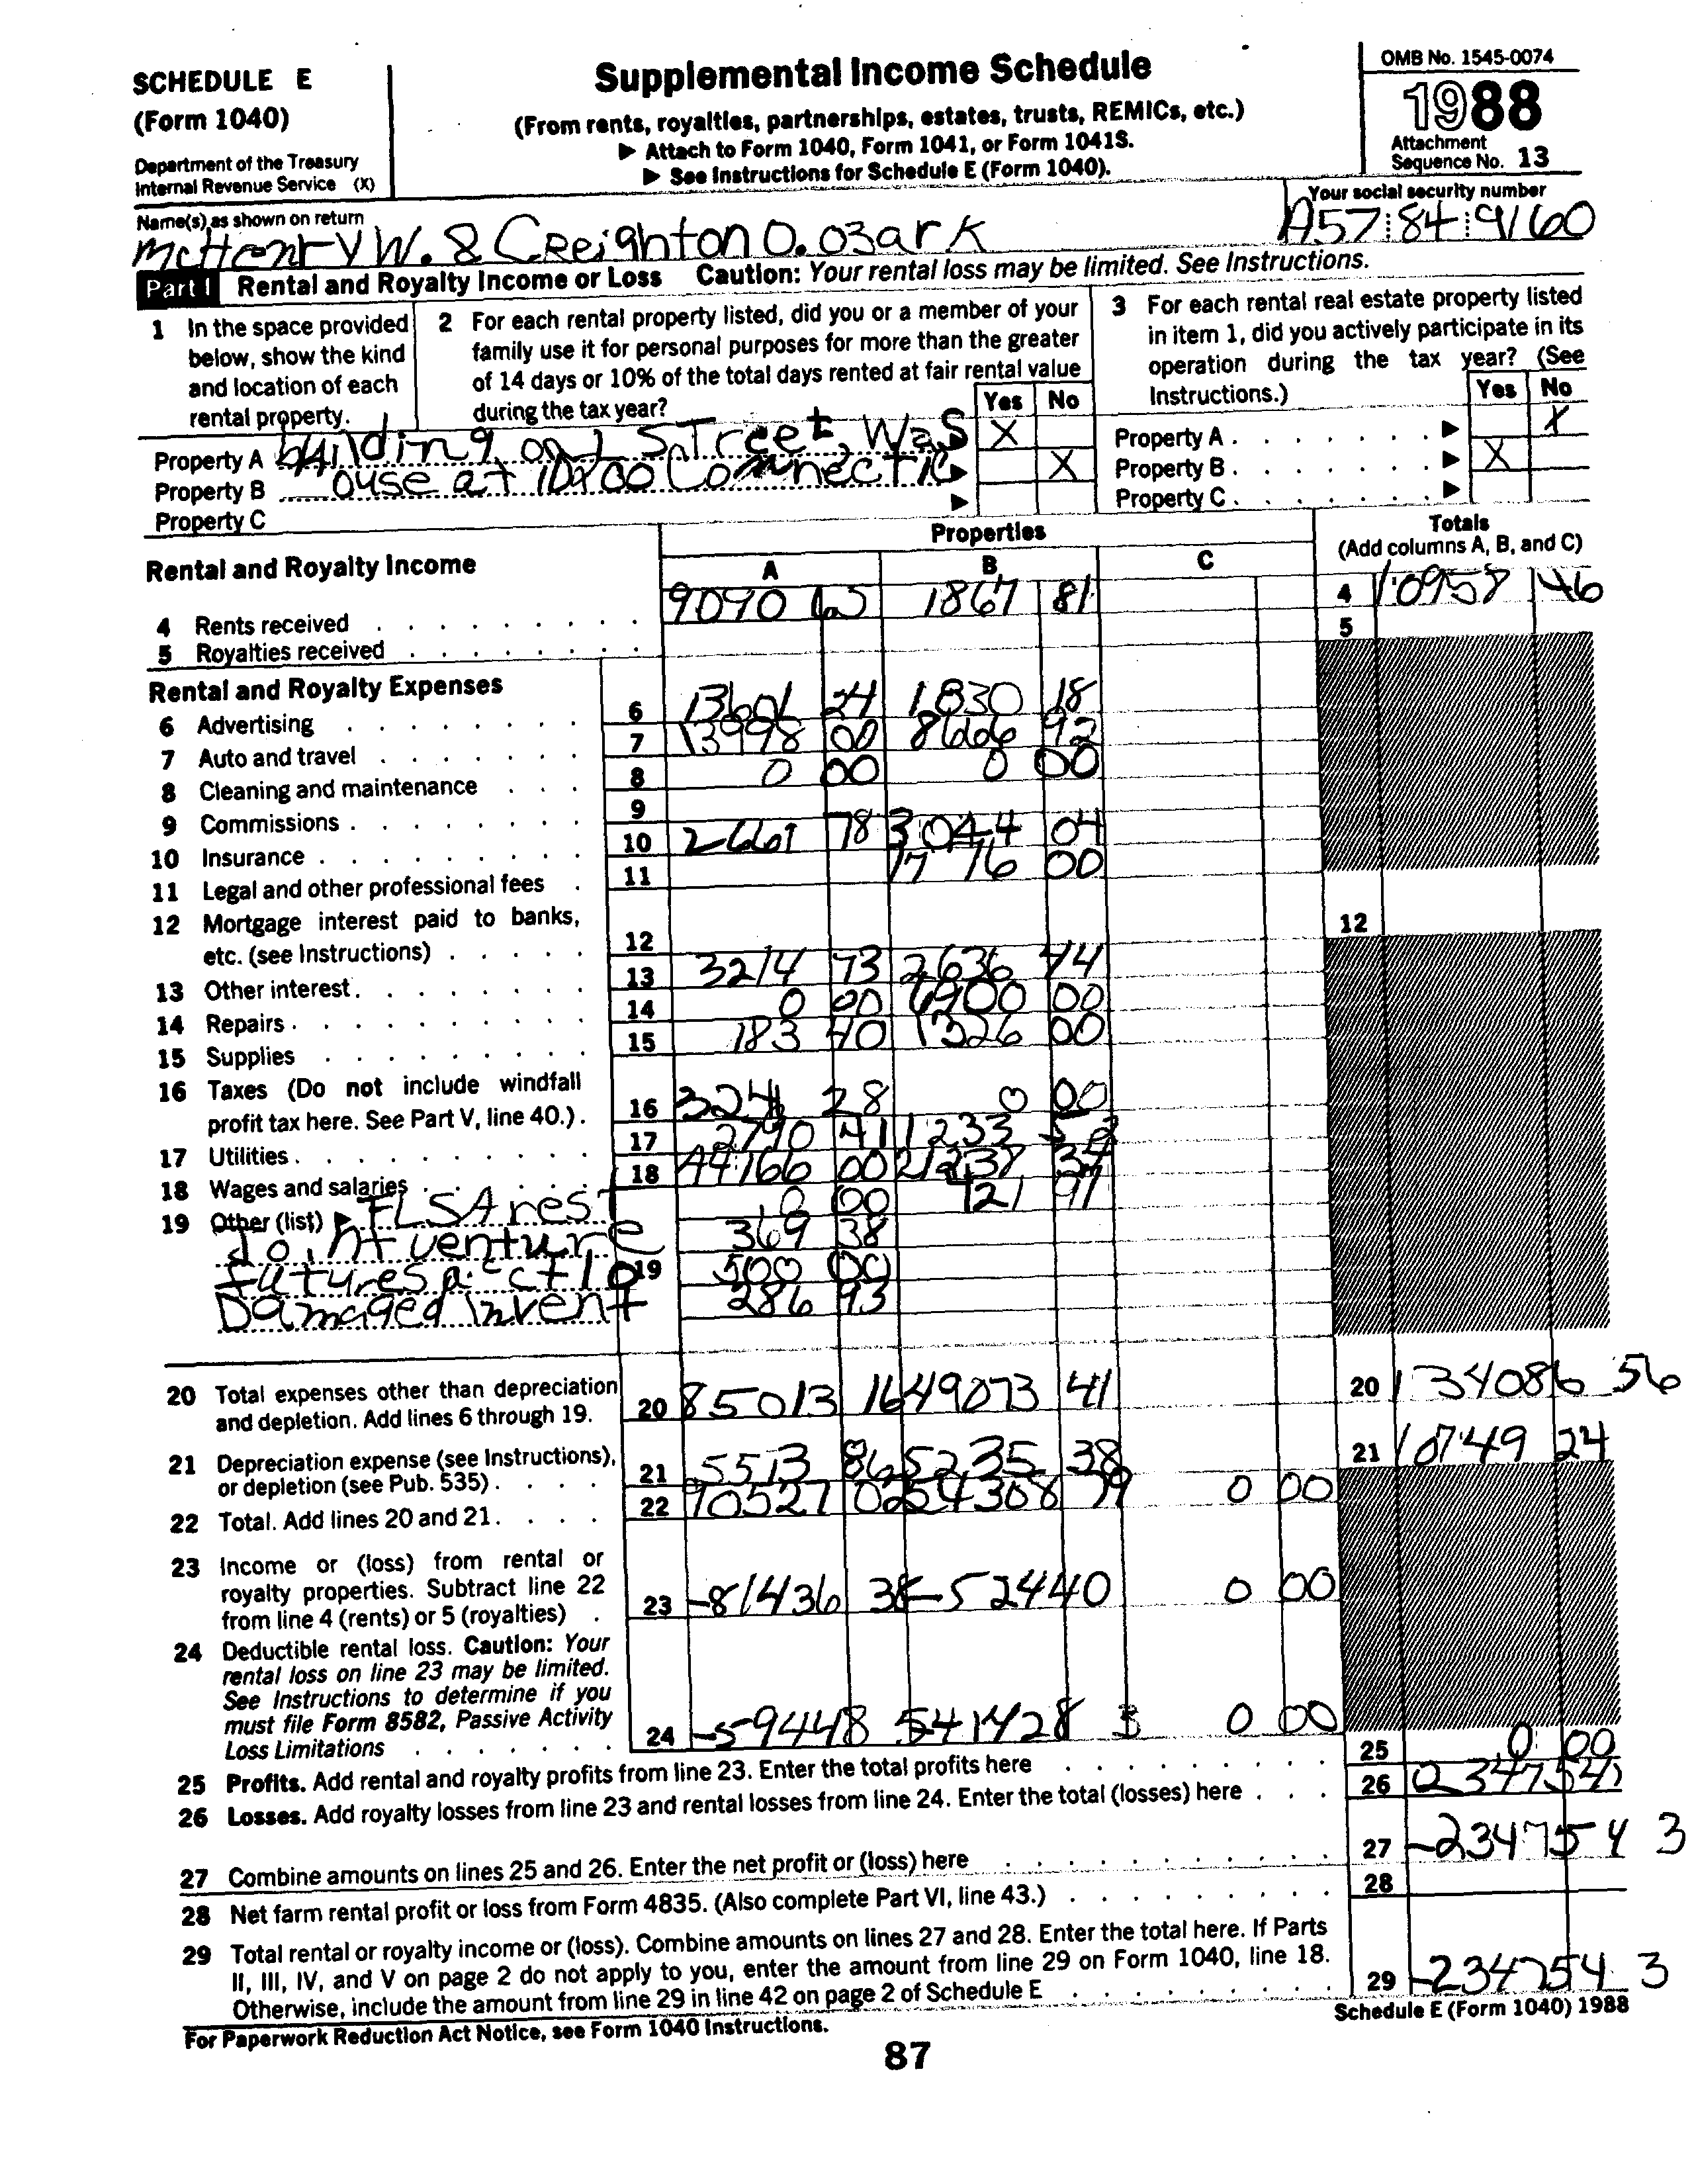 SCHEDULE E
(Form 1040)
Department of the Treasury
Internal Revenue Service (X)
Supplemental Income Schedule
(From rents, royalties, partnerships, estates, trusts, REMICs, etc.)
▶ Attach to Form 1040, Form 1041, or Form 1041S.
▶ See Instructions for Schedule E (Form 1040).
OMB No. 1545-0074
1988
Attachment
Sequence No. 13
Name(s) as shown on return
McHenry W. & Creighton O. Ozark
Your social security number
A57 84 9160
Part I Rental and Royalty Income or Loss Caution: Your rental loss may be limited. See Instructions.
1 In the space provided
below, show the kind
and location of each
rental property.
2 For each rental property listed, did you or a member of your
family use it for personal purposes for more than the greater
of 14 days or 10% of the total days rented at fair rental value
during the tax year?
Yes No
3 For each rental real estate property listed
in item 1, did you actively participate in its
operation during the tax year? (See
Instructions.)
Yes No
Property A building on L STreet, Was ▶ X
Property B ouse at 10200 Connectic ▶ X
Property C ▶
Property A . . . . . . . ▶ X
Property B . . . . . . . ▶ X
Property C . . . . . . . ▶
Rental and Royalty Income
Properties
A B C
Totals
(Add columns A, B, and C)
4 Rents received 9090 65 1867 81 4 10958 46
5 Royalties received 5
Rental and Royalty Expenses
6 Advertising 6 13601 24 1830 18
7 Auto and travel 7 13998 00 8666 92
8 Cleaning and maintenance 8 0 00 0 00
9 Commissions 9
10 Insurance 10 2661 78 3044 04
11 Legal and other professional fees 11 17 76 00
12 Mortgage interest paid to banks,
etc. (see Instructions) 12 12
13 Other interest 13 3214 73 2636 44
14 Repairs 14 0 00 6900 00
15 Supplies 15 183 40 1326 00
16 Taxes (Do not include windfall
profit tax here. See Part V, line 40.) 16 324 28 0 00
17 Utilities 17 2790 41 1233
18 Wages and salaries 18 44166 00 21237 34
19 Other (list) ▶ FLSA rest 0 00 421 97
Joint venture 369 38
futures acct lo 19 500 00
Damaged invent 286 93
20 Total expenses other than depreciation
and depletion. Add lines 6 through 19. 20 85013 16 49073 41 20 134086 56
21 Depreciation expense (see Instructions),
or depletion (see Pub. 535) 21 5513 86 5235 38 21 10749 24
22 Total. Add lines 20 and 21. 22 90527 02 54308 79 0 00
23 Income or (loss) from rental or
royalty properties. Subtract line 22
from line 4 (rents) or 5 (royalties) 23 -81436 38 -52440 0 00
24 Deductible rental loss. Caution: Your
rental loss on line 23 may be limited.
See Instructions to determine if you
must file Form 8582, Passive Activity
Loss Limitations 24 -59448 541428 3 0 00
25 Profits. Add rental and royalty profits from line 23. Enter the total profits here 25 0 00
26 Losses. Add royalty losses from line 23 and rental losses from line 24. Enter the total (losses) here 26 (234754)
27 Combine amounts on lines 25 and 26. Enter the net profit or (loss) here 27 -234754 3
28 Net farm rental profit or loss from Form 4835. (Also complete Part VI, line 43.) 28
29 Total rental or royalty income or (loss). Combine amounts on lines 27 and 28. Enter the total here. If Parts
II, III, IV, and V on page 2 do not apply to you, enter the amount from line 29 on Form 1040, line 18.
Otherwise, include the amount from line 29 in line 42 on page 2 of Schedule E 29 -234754 3
For Paperwork Reduction Act Notice, see Form 1040 Instructions.
Schedule E (Form 1040) 1988
87